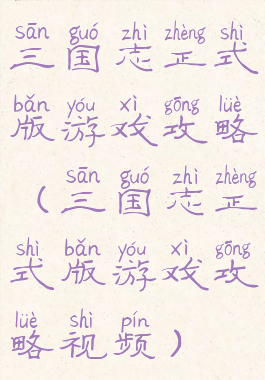 sān guó zhì zhèng shì
三国志正式
bǎn yóu xì gōng lüè
版游戏攻略
sān guó zhì zhèng
（三国志正
shì bǎn yóu xì gōng
式版游戏攻
lüè shì pín
略视频）